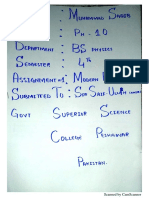 : Muhammad Shoaib
: Ph - 10
Department : BS physics
Semester : 4th
Assignment #1 Modern
Submitted To : Sir Saif-Ullah
Govt Superior Science
College Peshawar
Pakistan.
Scanned by CamScanner